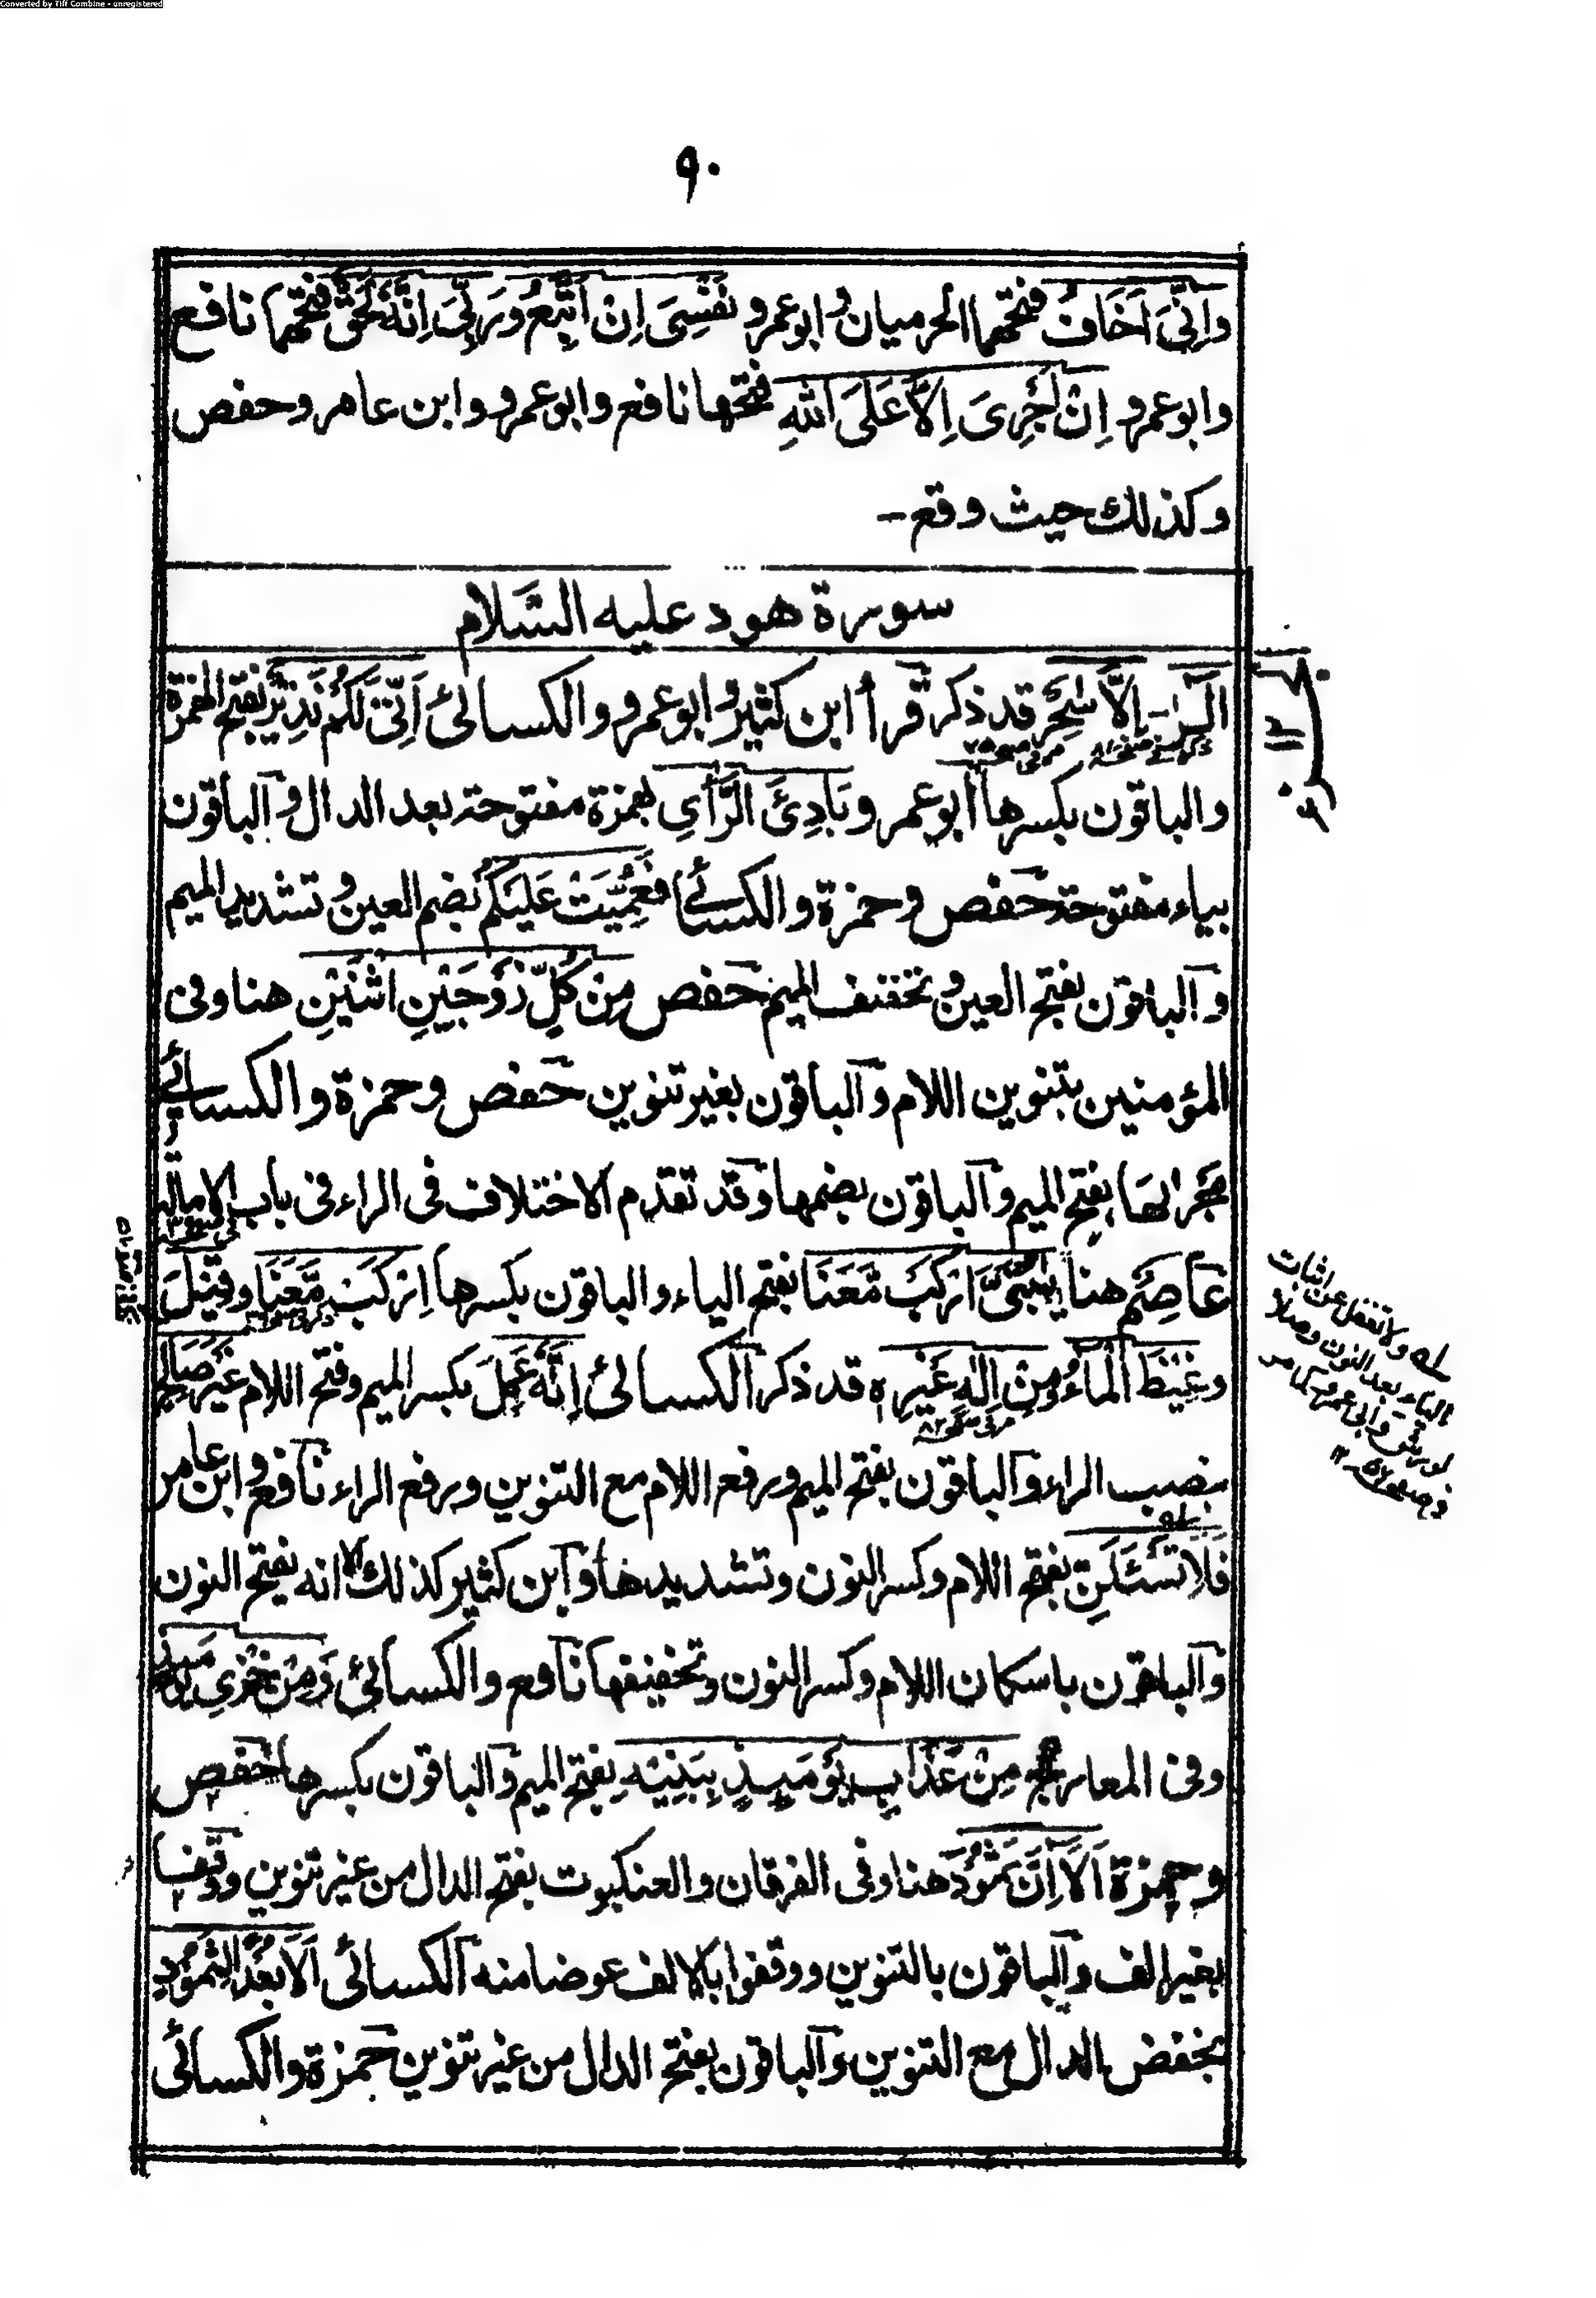 Converted by Tiff Combine - unregistered
۹۰
وَاِنِّیَ اَخَافُ فتحهما الحرمیان وابوعمرو نَفْسِیَ اِنْ اَتَّبِعُ وَرَبِّیَ اِنَّهٗ لَحَقٌّ فتحهما نافع
وابوعمرو اِنْ اَجْرِیَ اِلَّا عَلَی اللهِ فتحها نافع وابوعمرو وابن عامر وحفص
وكذلك حیث وقع-
سورة هود علیه السّلام
الٓرٰ- اِلَّا سٰحِرٌ قد ذكر قرأ ابن كثیر وابوعمرو والكسائی اَنِّیْ لَكُمْ نَذِیْرٌ بفتح الهمزة
ذكر فی صفحه ۸۱ مر فی صفحه
والباقون بكسرها ابوعمرو بَادِئَ الرَّأْیِ بهمزة مفتوحة بعد الدال والباقون
بیاء مفتوحة حفص وحمزة والكسائی فَعُمِّیَتْ عَلَیْكُمْ بضم العین وتشدید المیم
والباقون بفتح العین وتخفیف المیم حفص مِنْ كُلٍّ زَوْجَیْنِ اثْنَیْنِ هنا وفی
المؤمنین بتنوین اللام والباقون بغیر تنوین حفص وحمزة والكسائی
مَجْرٰىهَا بفتح المیم والباقون بضمها وقد تقدم الاختلاف فی الراء فی باب الامالة
عَاصِمٌ هنا یٰبُنَیَّ ارْكَبْ مَّعَنَا بفتح الیاء والباقون بكسرها اِرْكَبْ مَّعَنَا وقِیْلَ
وغِیْضَ الْمَاءُ ومِنْ اِلٰهٍ غَیْرِهٖ قد ذكر الكسائی اِنَّهٗ عَمِلَ بكسر المیم وفتح اللام غَیْرَ صَالِحٍ
مر فی صفحه ۸۲
بنصب الراء والباقون بفتح المیم ورفع اللام مع التنوین ورفع الراء نافع وابن عامر
فَلَا تَسْئَلَنِّ بفتح اللام وكسر النون وتشدیدها وابن كثیر كذلك الا انه بفتح النون
والباقون باسكان اللام وكسر النون وتخفیفها نافع والكسائی وَمِنْ خِزْیِ یَوْمَئِذٍ
وفی المعارج مِنْ عَذَابِ یَوْمَئِذٍ بِبَنِیْهِ بفتح المیم والباقون بكسرها حفص
وحمزة اَلَا اِنَّ ثَمُوْدَ هنا وفی الفرقان والعنكبوت بفتح الدال من غیر تنوین ووقفا
بغیر الف والباقون بالتنوین ووقفوا بالالف عوضا منه الكسائی اَلَا بُعْدًا لِّثَمُوْدٍ
بخفض الدال مع التنوین والباقون بفتح الدال من غیر تنوین حمزة والكسائی
له ولا تغفل عن اثبات
الیاء بعد النون وصلا
لورش وابی عمرو كما مر